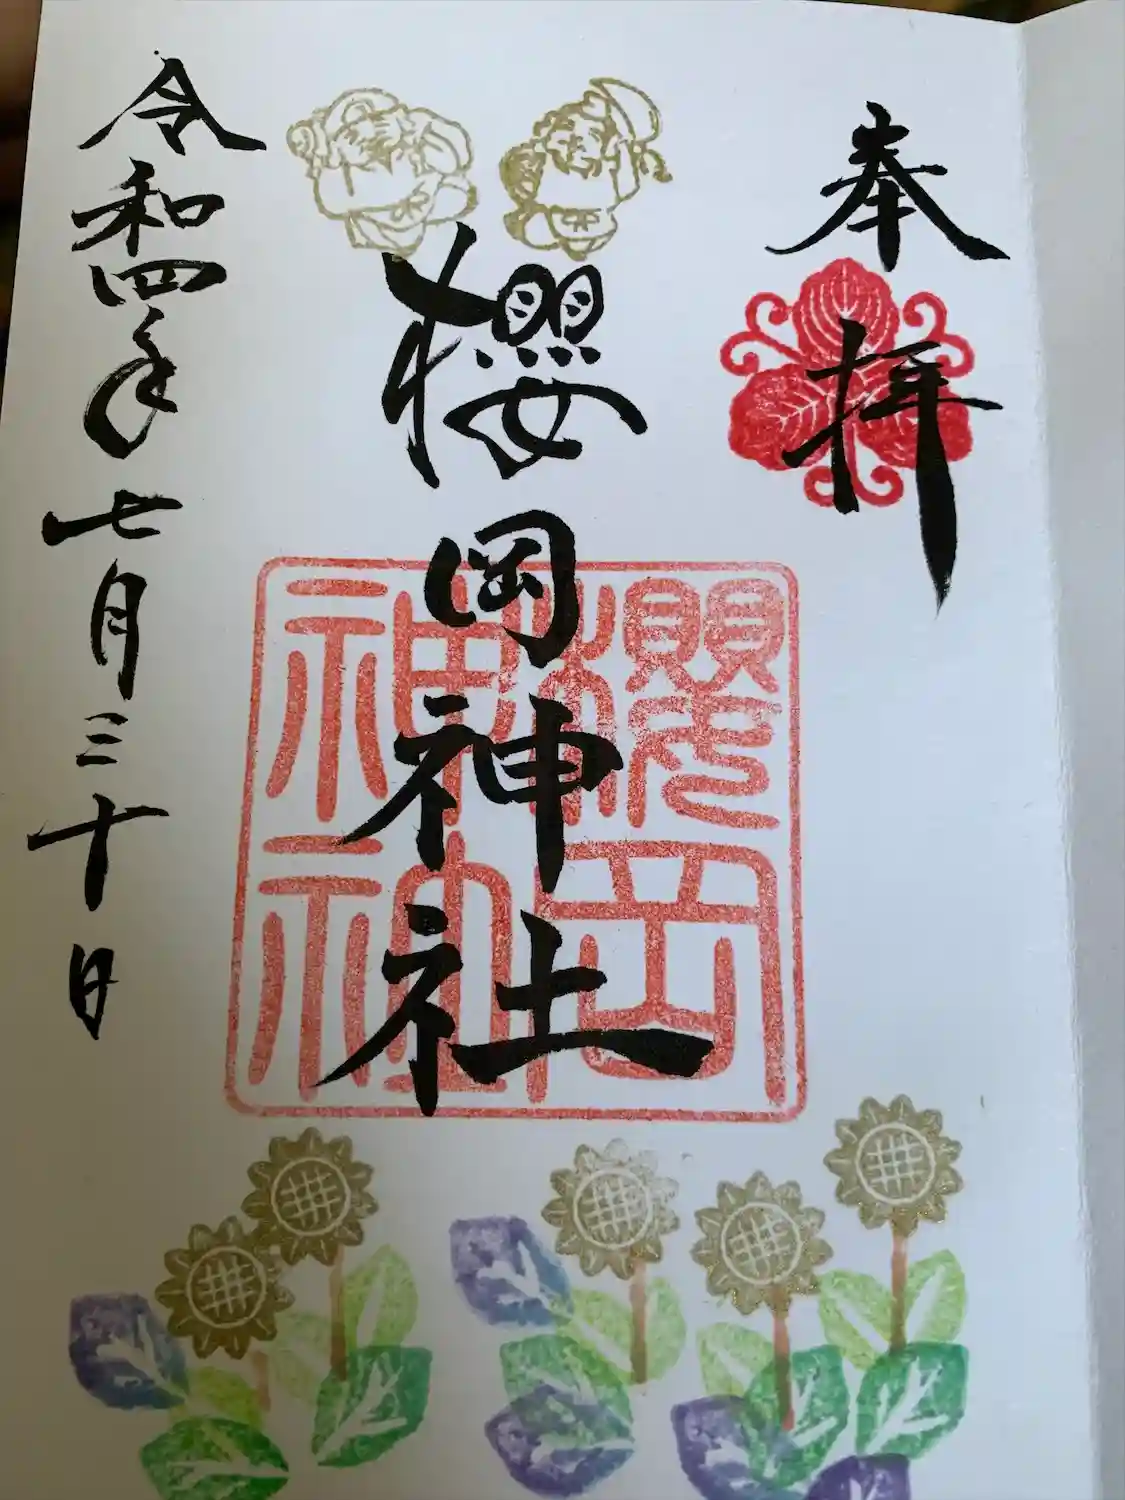 奉拝
櫻岡神社
櫻岡
神社
令和四年七月三十日